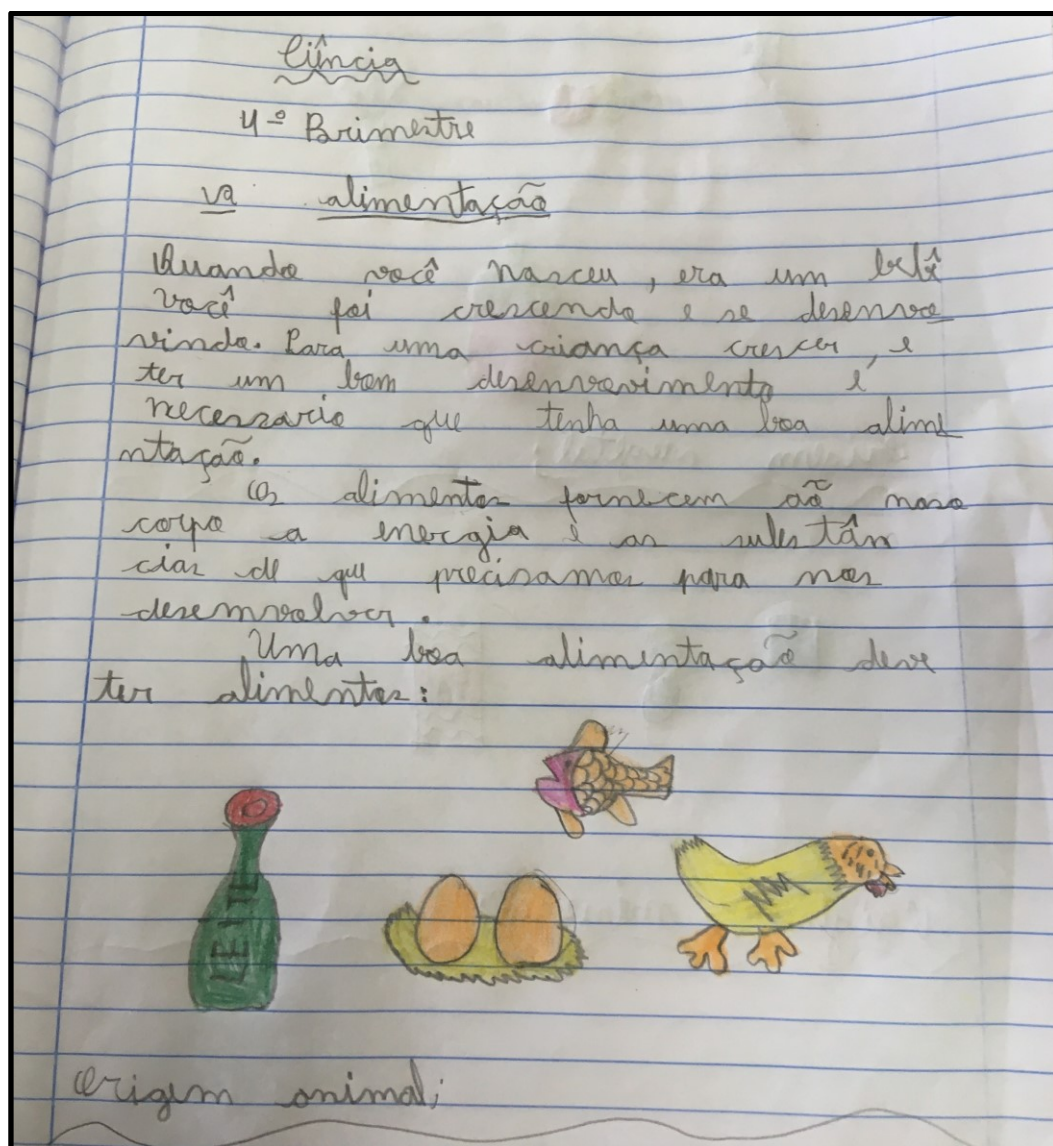 Ciência
4º Brimestre
1ª alimentação
Quando você nasceu, era um bebê
você foi crescendo e se desenvo
vindo. Para uma criança crescer, e
ter um bom desenvovimento é
necessario que tenha uma boa alime
ntação.
Os alimentos fornecem aõ noso
corpo a energia e as substân
cias de que precisamos para nos
desemvolver.
Uma boa alimentação deve
ter alimentos:
LEITE
Origem animal;